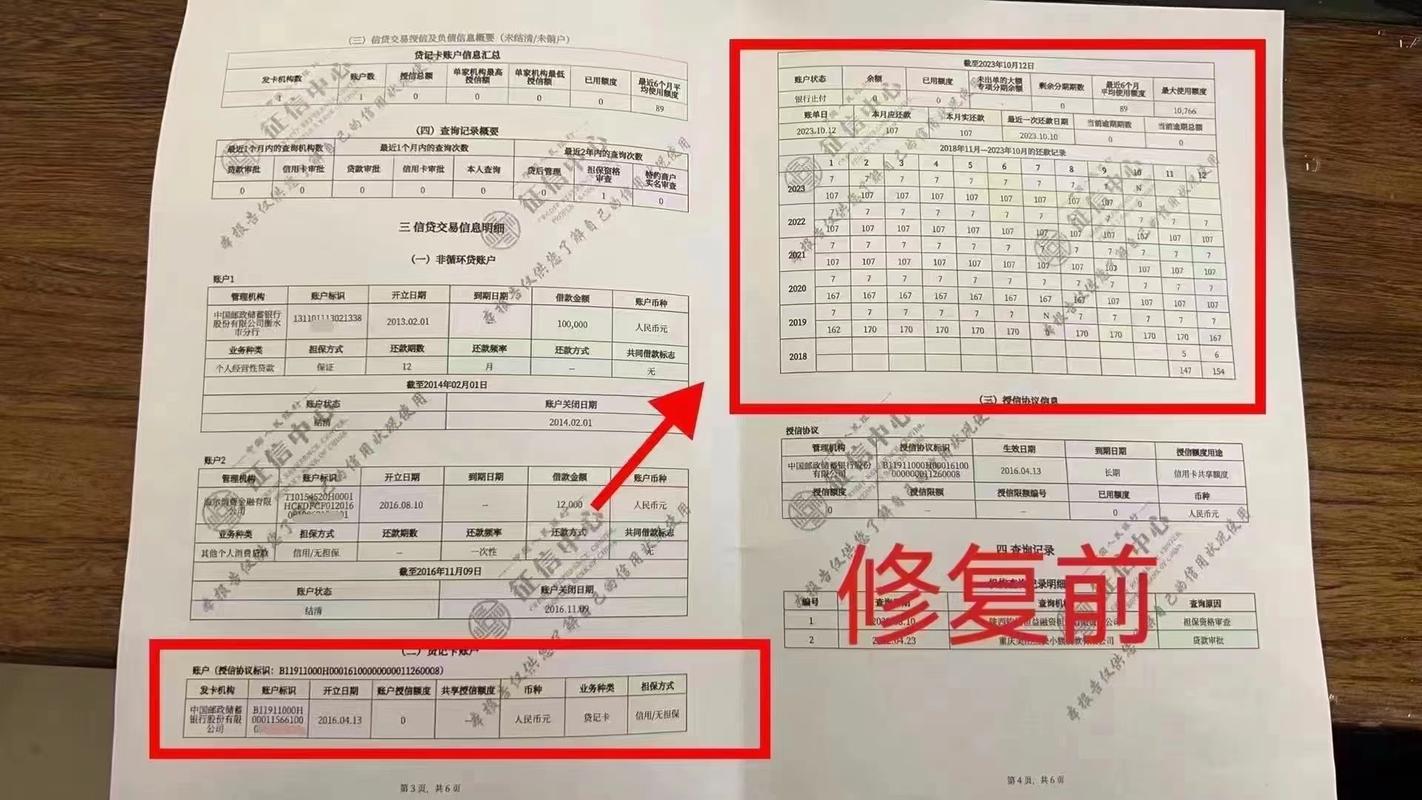 （三）信贷交易授信及负债信息概要（未结清/未销户）
贷记卡账户信息汇总
发卡机构数 账户数 授信总额 单家机构最高授信额 单家机构最低授信额 已用额度 最近6个月平均使用额度
1 0 0 0 0 89
（四）查询记录概要
最近1个月内的查询机构数 最近1个月内的查询次数 最近2年内的查询次数
贷款审批 信用卡审批 贷款审批 信用卡审批 本人查询 贷后管理 担保资格审查 特约商户实名审查
0 0 0 0 0 0 1 0
三 信贷交易信息明细
（一）非循环贷账户
账户1
管理机构 账户标识 开立日期 到期日期 借款金额 账户币种
中国邮政储蓄银行股份有限公司衡水市分行 131101113021338 2013.02.01 100,000 人民币元
业务种类 担保方式 还款期数 还款频率 还款方式 共同借款标志
个人经营性贷款 保证 12 月 -- 无
截至2014年02月01日
账户状态 账户关闭日期
结清 2014.02.01
账户2
管理机构 账户标识 开立日期 到期日期 借款金额 账户币种
海尔消费金融有限公司 T10154520H0001 2016.08.10 -- 12,000 人民币元
业务种类 担保方式 还款期数 还款频率 还款方式 共同借款标志
其他个人消费贷款 信用/无担保 -- 一次性 -- 无
截至2016年11月09日
账户状态 账户关闭日期
结清 2016.11.09
（二）贷记卡账户
账户（授信协议标识：B11911000H0001610000000011260008）
发卡机构 账户标识 开立日期 账户授信额度 共享授信额度 币种 业务种类 担保方式
中国邮政储蓄银行股份有限公司 B11911000H00011566100 2016.04.13 0 -- 人民币元 贷记卡 信用/无担保
第 3 页，共 6 页
截至2023年10月12日
账户状态 余额 已用额度 未出单的大额专项分期余额 剩余分期期数 最近6个月平均使用额度 最大使用额度
银行止付 0 0 89 10,766
账单日 本月应还款 本月实还款 最近一次还款日期 当前逾期期数 当前逾期总额
2023.10.12 107 107 2023.10.10 0 0
2018年11月—2023年10月的还款记录
1 2 3 4 5 6 7 8 9 10 11 12
2023 7 7 7 7 7 7 7 7 N
107 107 107 107 107 107 107 107 107 0
2022 7 7 7 7 7 7 7 7 7 7
107 107 107 107 107 107 107 107 107 107 107
2021 7 7 7 7 7 7 7 7 7 7
107 107 107 107 107 107 107 107 107 107 107
2020 7 7 7 7 7 7 7 7 7
167 167 167 167 167 167 167 107 107 107
2019 7 7 7 7 7 7 N 7 7 7 7
162 170 170 170 170 170 0 170 170 170 167
2018 5 6
147 154
（三）授信协议信息
授信协议
管理机构 授信协议标识 生效日期 到期日期 授信额度用途
中国邮政储蓄银行股份有限公司 B11911000H00016100000000011260008 2016.04.13 长期 信用卡共享额度
授信额度 授信限额 授信限额编号 已用额度 币种
0 -- -- 0 人民币元
四 查询记录
机构查询记录明细
编号 查询日期 查询机构 查询原因
1 担保资格审查
2 04.23 贷款审批
修复前
第 4 页，共 6 页
征信中心
本报告仅供您了解自己的信用状况使用